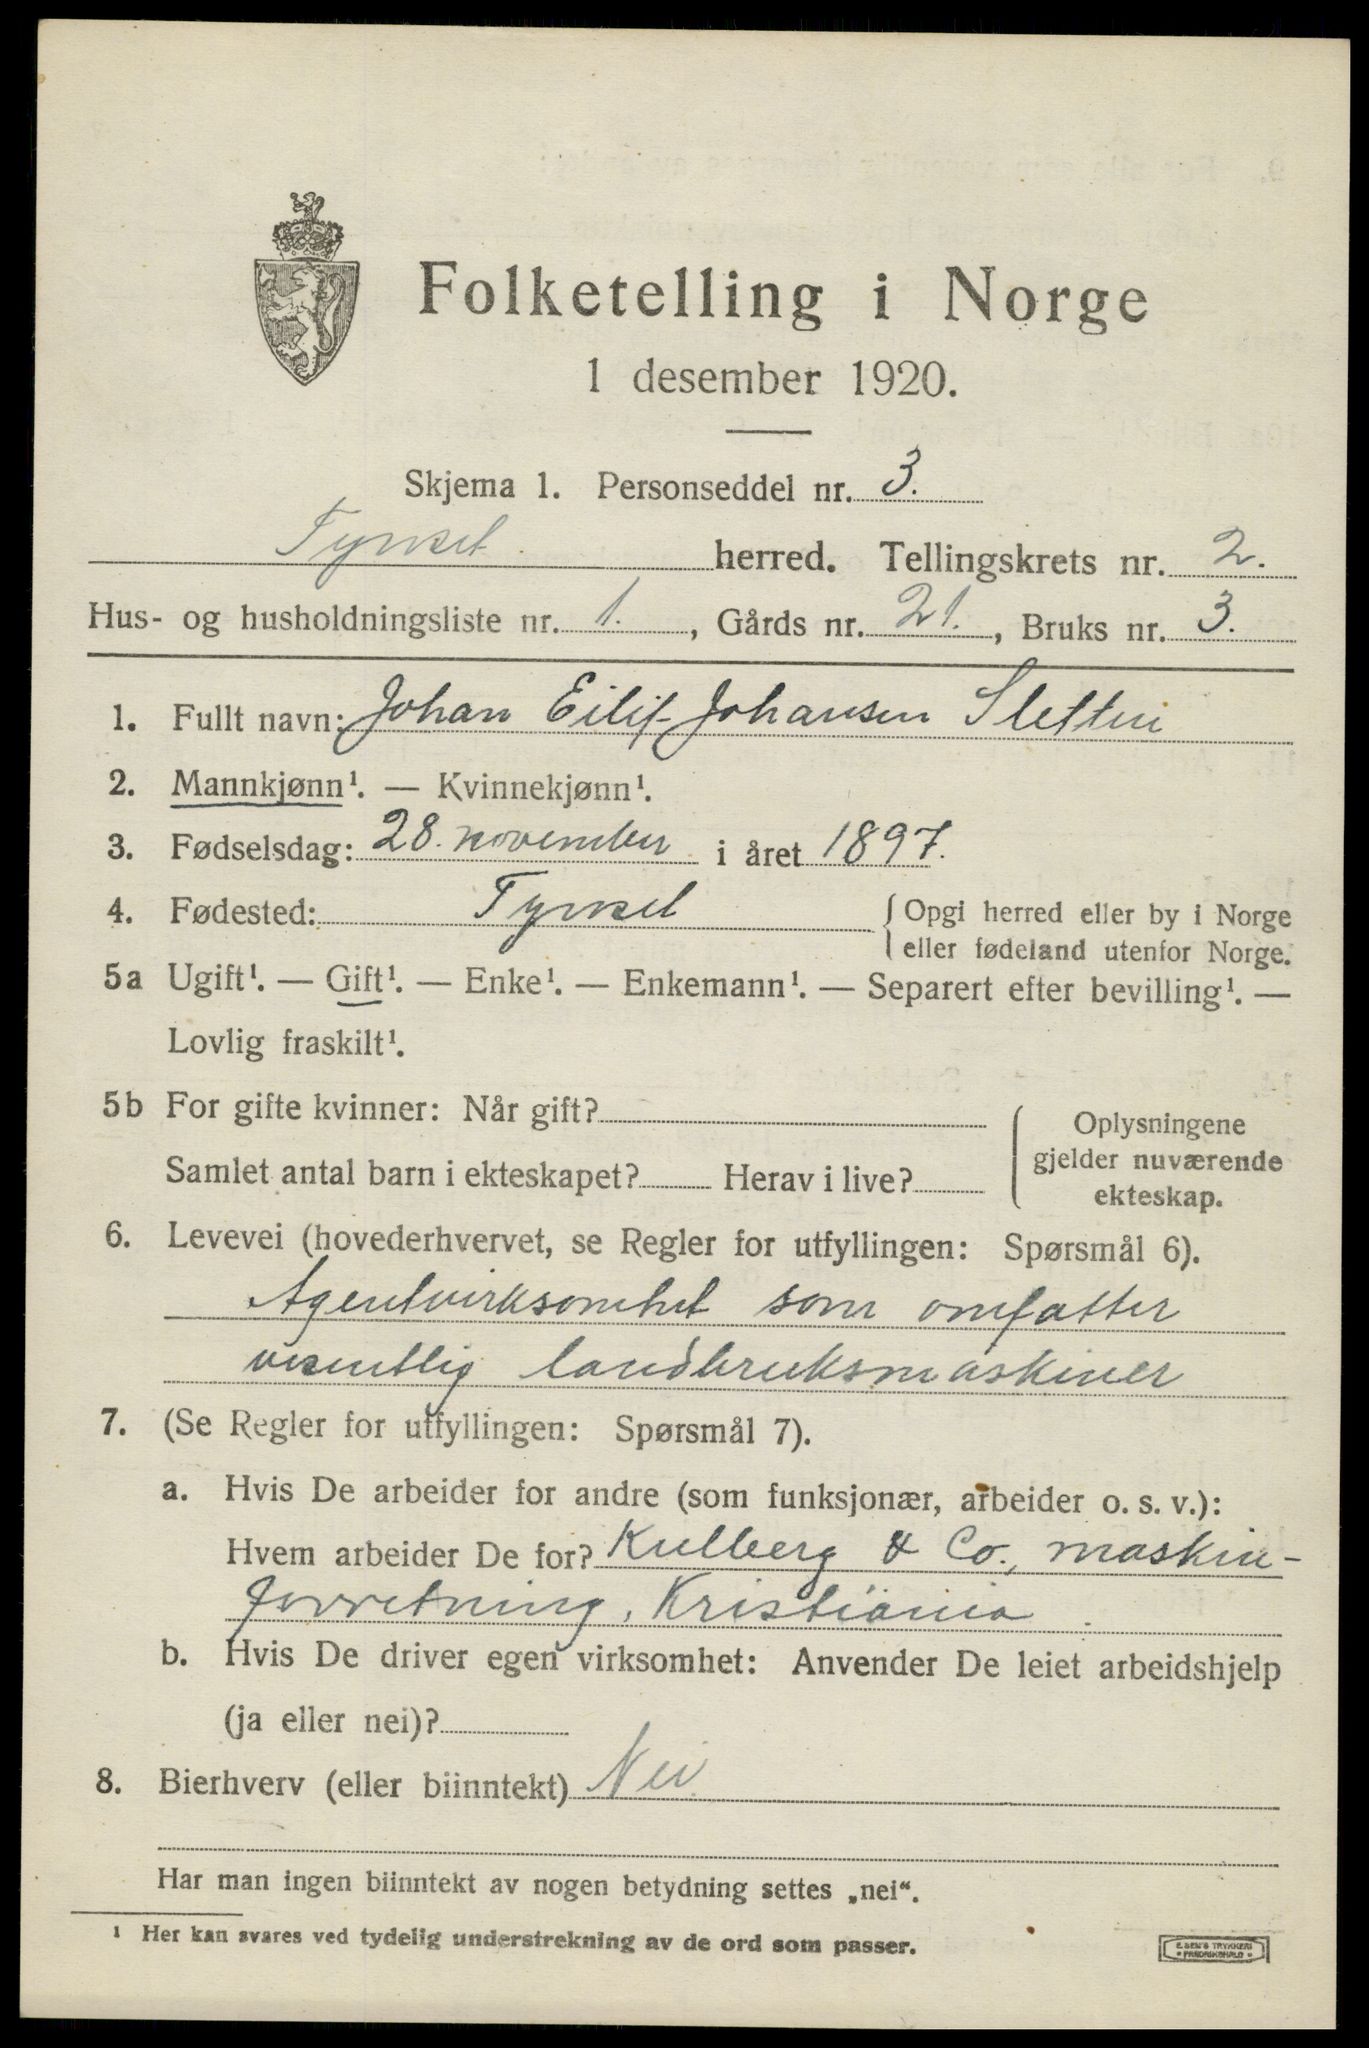 Folketelling i Norge
1 desember 1920.
Skjema 1. Personseddel nr. 3.
Tynset herred. Tellingskrets nr. 2.
Hus- og husholdningsliste nr. 1., Gårds nr. 21., Bruks nr. 3.
1. Fullt navn: Johan Eilif Johansen Sletten
2. Mannkjønn¹. — Kvinnekjønn¹.
3. Fødselsdag: 28. november i året 1897.
4. Fødested: Tynset { Opgi herred eller by i Norge
eller fødeland utenfor Norge.
5a Ugift¹. — Gift¹. — Enke¹. — Enkemann¹. — Separert efter bevilling¹. —
Lovlig fraskilt¹.
5b For gifte kvinner: Når gift?
Samlet antal barn i ekteskapet? Herav i live?
Oplysningene
gjelder nuværende
ekteskap.
6. Levevei (hovederhvervet, se Regler for utfyllingen: Spørsmål 6).
Agentvirksomhet som omfatter
vesentlig landbruksmaskiner
7. (Se Regler for utfyllingen: Spørsmål 7).
a. Hvis De arbeider for andre (som funksjonær, arbeider o. s. v.):
Hvem arbeider De for? Kullberg & Co., maskin-
forretning, Kristiania
b. Hvis De driver egen virksomhet: Anvender De leiet arbeidshjelp
(ja eller nei)?
8. Bierhverv (eller biinntekt) Nei
Har man ingen biinntekt av nogen betydning settes „nei“.
¹ Her kan svares ved tydelig understrekning av de ord som passer.
E. SEM'S TRYKKERI
FREDRIKSHALD